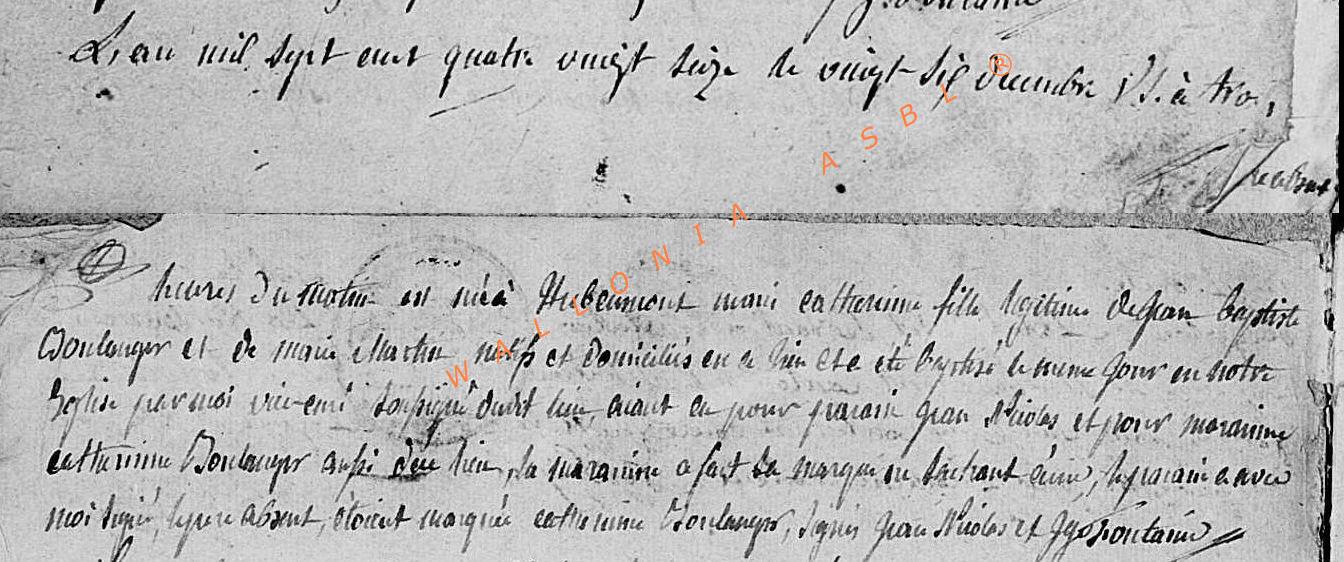 L'an mil sept cent quatre vingt seize le vingt six decembre V.S. à trois
heures du matin est né à Hubeaumont marie catherinne fille legitime de jean baptiste
Boulanger et de marie Martin natifs et domiciliés en ce lieu et a été baptisé le meme jour en notre
Eglise par moi vice-curé soussigné dudit lieu, aiant eu pour parain jean Nicolas et pour maraine
catherinne Boulanger aussi de ce lieu, la maraine a fait sa marque ne sachant écrire, le parain a avec
moi signé, le pere absent, étoient marquée catherinne Boulanger, signés jean Nicolas et Fontaine
WALLONIA ASBL ®